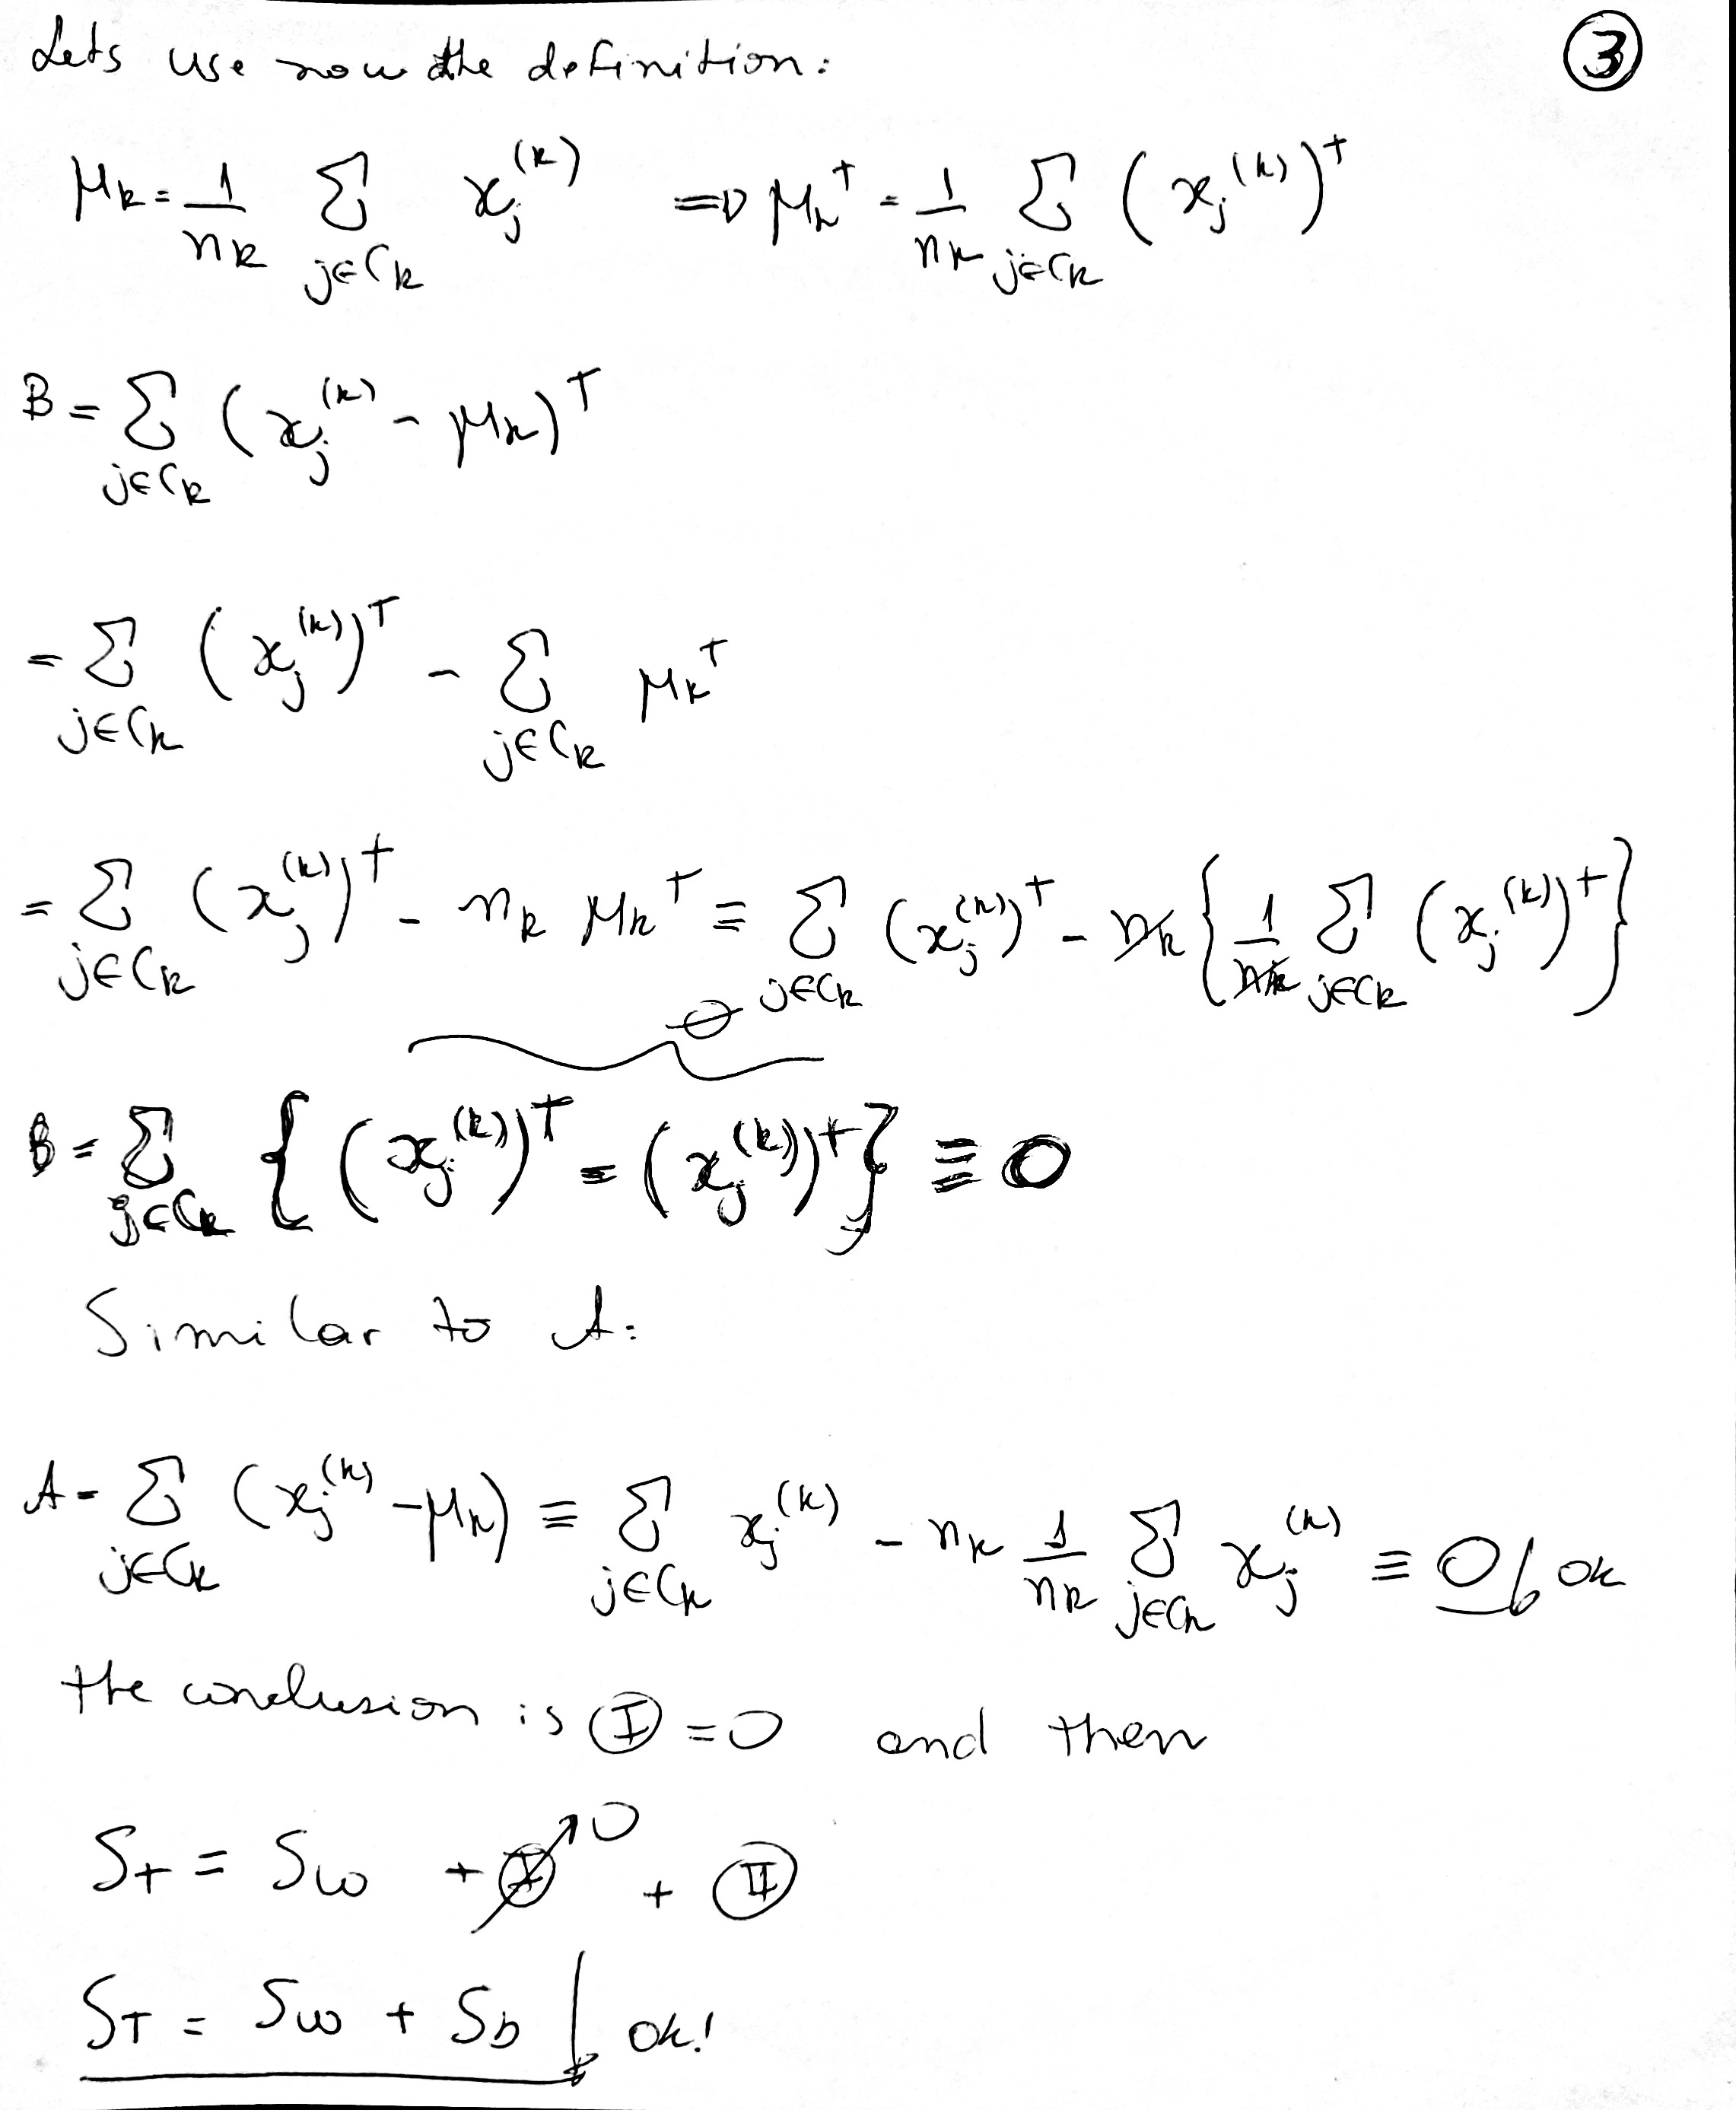 Lets use now the definition: ③
μ_k = 1/n_k Σ_{j∈C_k} x_j^{(k)} ⇒ μ_k^T = 1/n_k Σ_{j∈C_k} (x_j^{(k)})^T
B = Σ_{j∈C_k} (x_j^{(k)} - μ_k)^T
= Σ_{j∈C_k} (x_j^{(k)})^T - Σ_{j∈C_k} μ_k^T
= Σ_{j∈C_k} (x_j^{(k)})^T - n_k μ_k^T = Σ_{j∈C_k} (x_j^{(k)})^T - n_k { 1/n_k Σ_{j∈C_k} (x_j^{(k)})^T }
0
B = Σ_{j∈C_k} { (x_j^{(k)})^T - (x_j^{(k)})^T } ≡ 0
Similar to A:
A = Σ_{j∈C_k} (x_j^{(k)} - μ_k) = Σ_{j∈C_k} x_j^{(k)} - n_k 1/n_k Σ_{j∈C_k} x_j^{(k)} ≡ 0 ok
the conclusion is Ⓘ = 0 and then
S_T = S_w + Ⓘ 0 + ⓘⓘ
S_T = S_w + S_b ok!